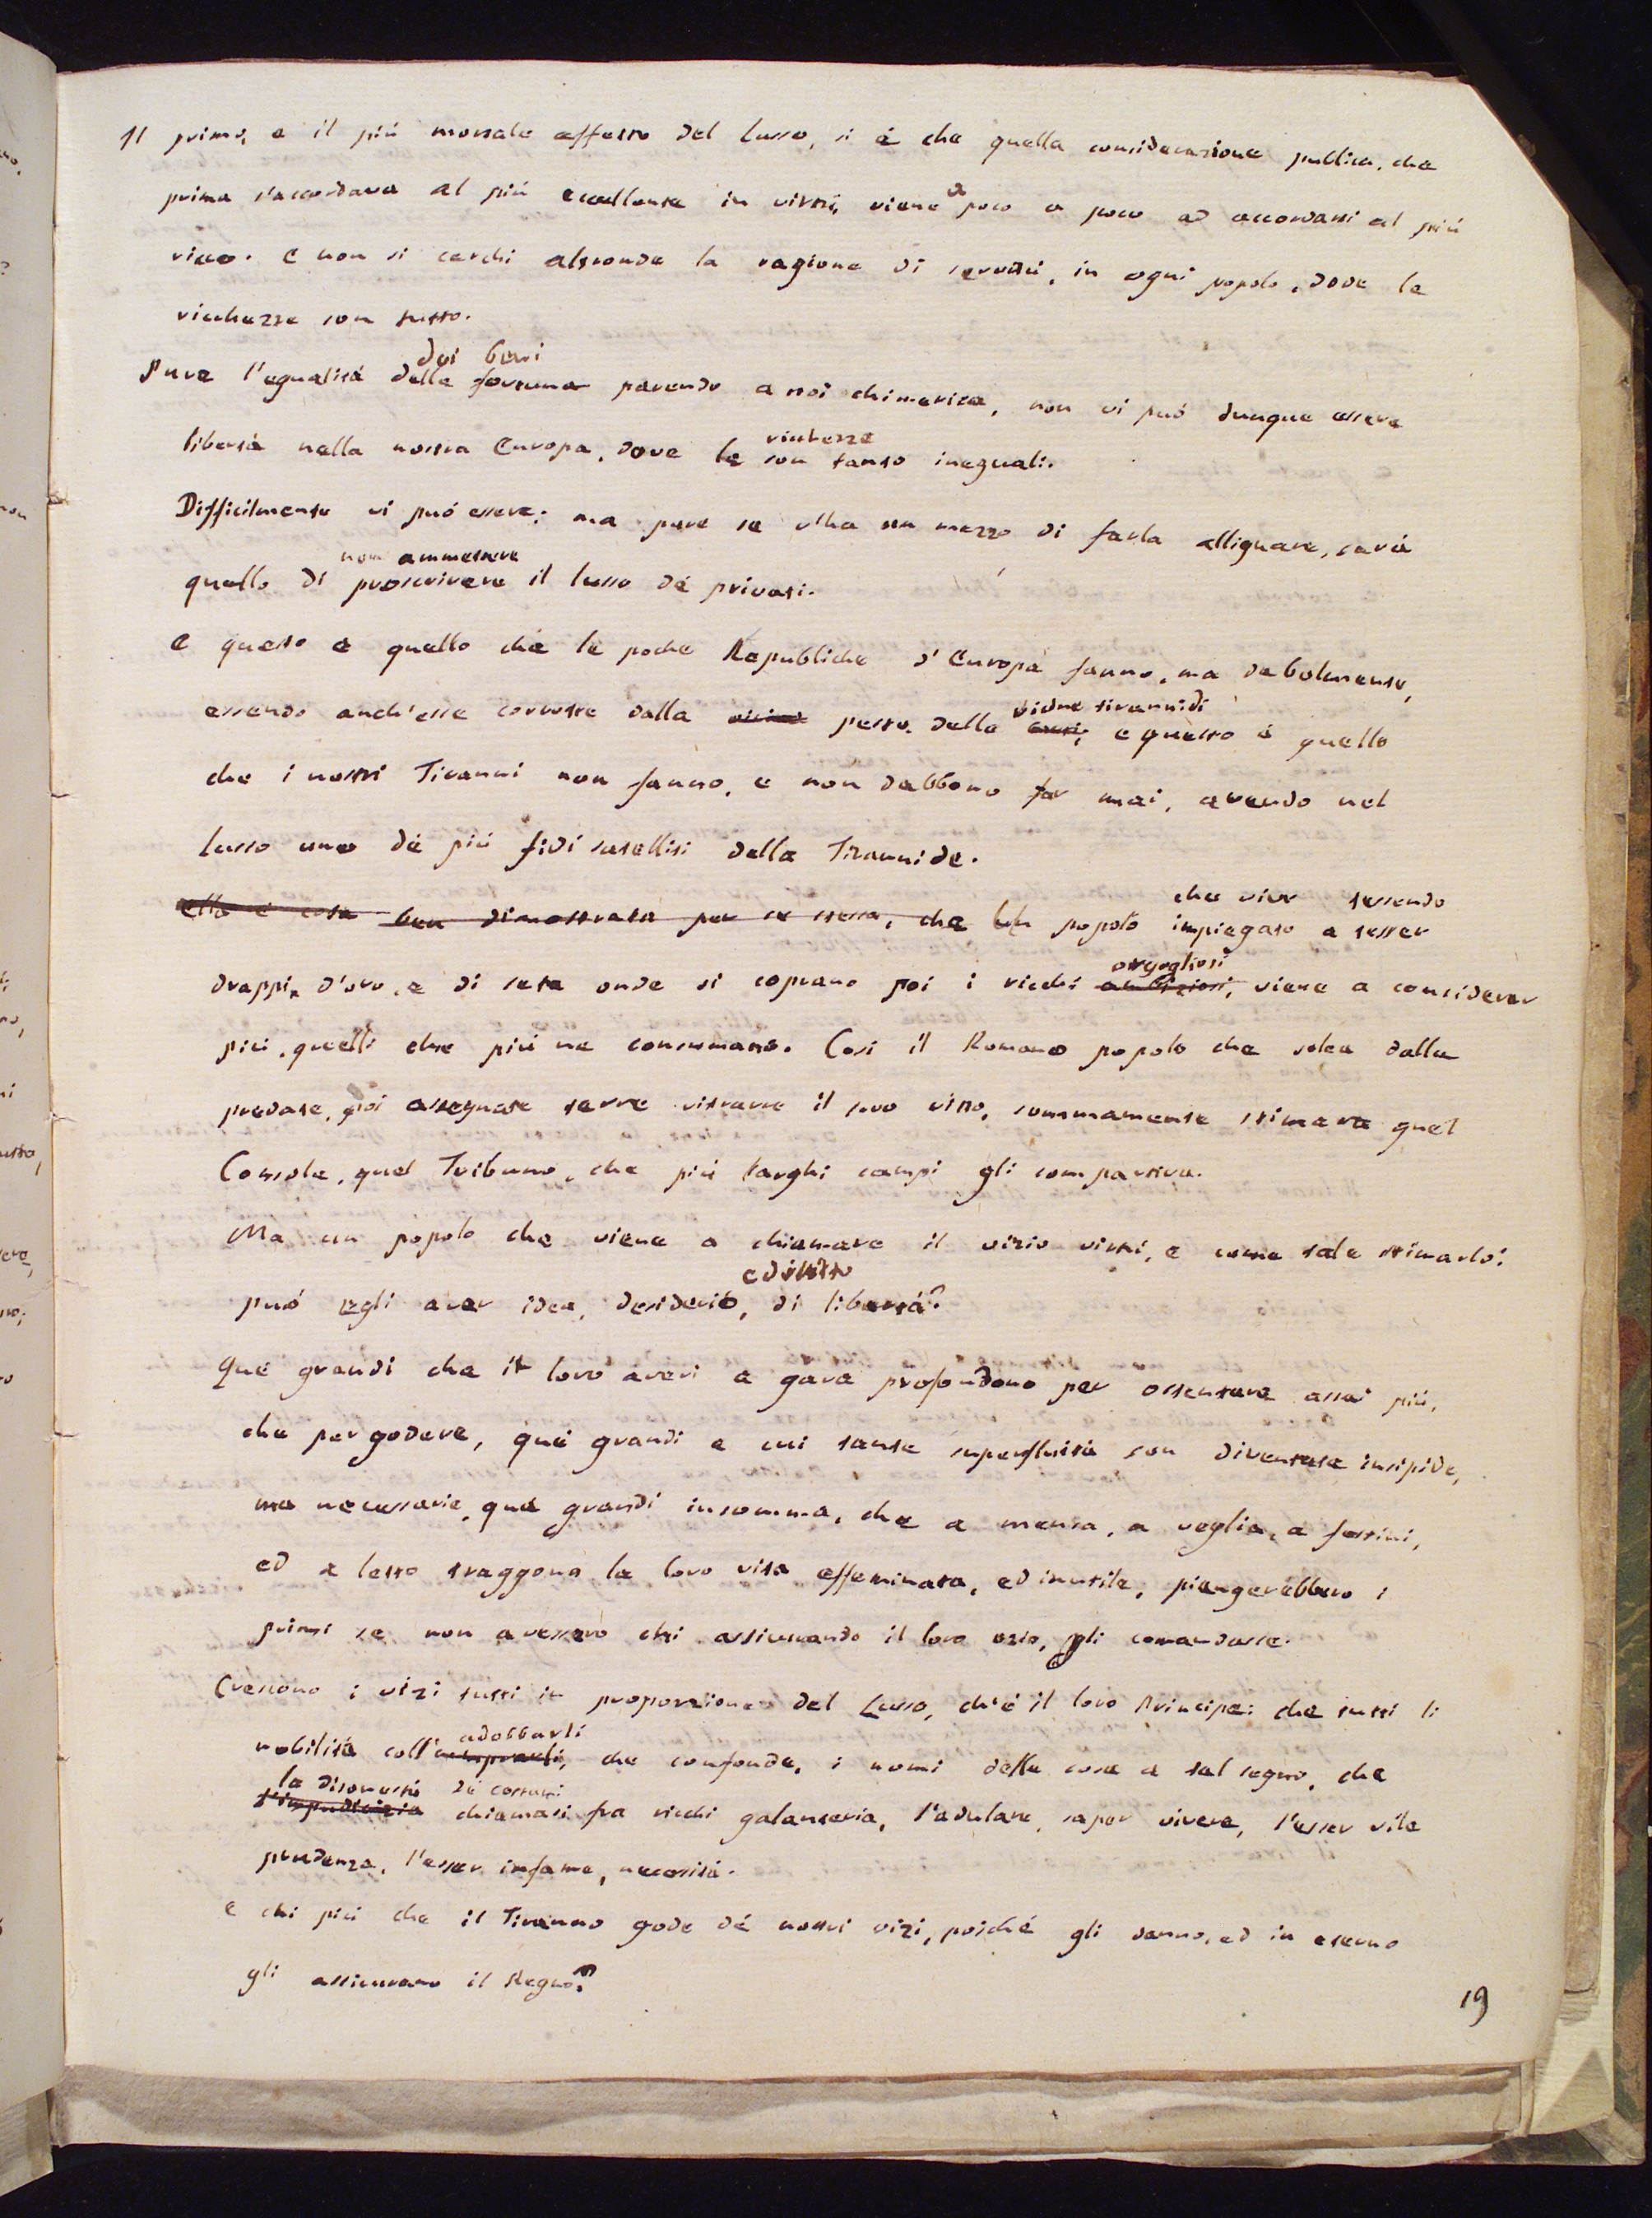 Il primo, e il più mortale effetto del lusso, si è che quella considerazione publica, che
prima s'accordava al più eccellente in virtù, viene a poco a poco ad accordarsi al più
ricco. e non si cerchi altronde la ragione di servitù, in ogni popolo, dove le
ricchezze son tutto.
dei beni
Pure l'egualità della fortuna parendo a noi chimerica, non vi può dunque essere
ricchezze
libertà nella nostra Europa, dove le son tanto ineguali.
Difficilmente vi può essere: ma pure se v'ha un mezzo di farla allignare, sarà
non ammettere
quello di proscrivere il lusso dé privati.
e questo è quello che le poche Republiche d'Europa fanno, ma debolmente,
vicine tirannidi
essendo anch'esse corrotte dalla peste della e questo è quello
che i nostri Tiranni non fanno, e non debbono far mai, avendo nel
lusso uno dé più fidi satelliti della Tirannide.
che vien tessendo
ella è cosa ben dimostrata per se stessa, che Un popolo impiegato a tesser
orgogliosi
drappi, d'oro, e di seta onde si coprano poi i ricchi ambiziosi, viene a considerar
più, quelli che più ne consumano. Così il Romano popolo che solea dalle
predate, poi assegnate terre ritrarre il suo vitto, sommamente stimava quel
Console, quel Tribuno, che più larghi campi gli compartiva.
Ma un popolo che viene a chiamare il vizio virtù, e come tale stimarlo:
può egli aver idea, desiderio, di libertà?
Qué grandi che il loro averi a gara profondono per ostentare assai più,
che per godere, qué grandi a cui tante superfluità son diventate insipide,
ma necessarie, qué grandi insomma, che a mensa, a veglia, a festini,
ed a letto traggono la loro vita effeminata, ed inutile, piangerebbero i
primi se non avessero chi assicurando il loro ozio, gli comandasse.
Crescono i vizi tutti in proporzione del Lusso, ch'è il loro Principe: che tutti li
adobbarli
nobilità coll' che confonde, i nomi delle cose a tal segno, che
la disonestà dé costumi
l'impudicizia chiamasi fra ricchi galanteria, l'adulare, saper vivere, l'esser vile
prudenza, l'esser infame, necessità.
e chi più che il Tiranno gode dé nostri vizi, poiché gli danno, ed in eterno
gli assicurano il Regno?
19